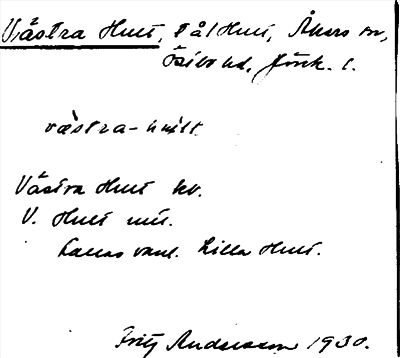 Västra Hult, på Hult, Åkers sn,
Östbo hd, Jönk. l.
västra-hult
Västra Hult kv.
V. Hult mtl.
Kallas vanl. Lilla Hult.
Fritz Andersson 1930.